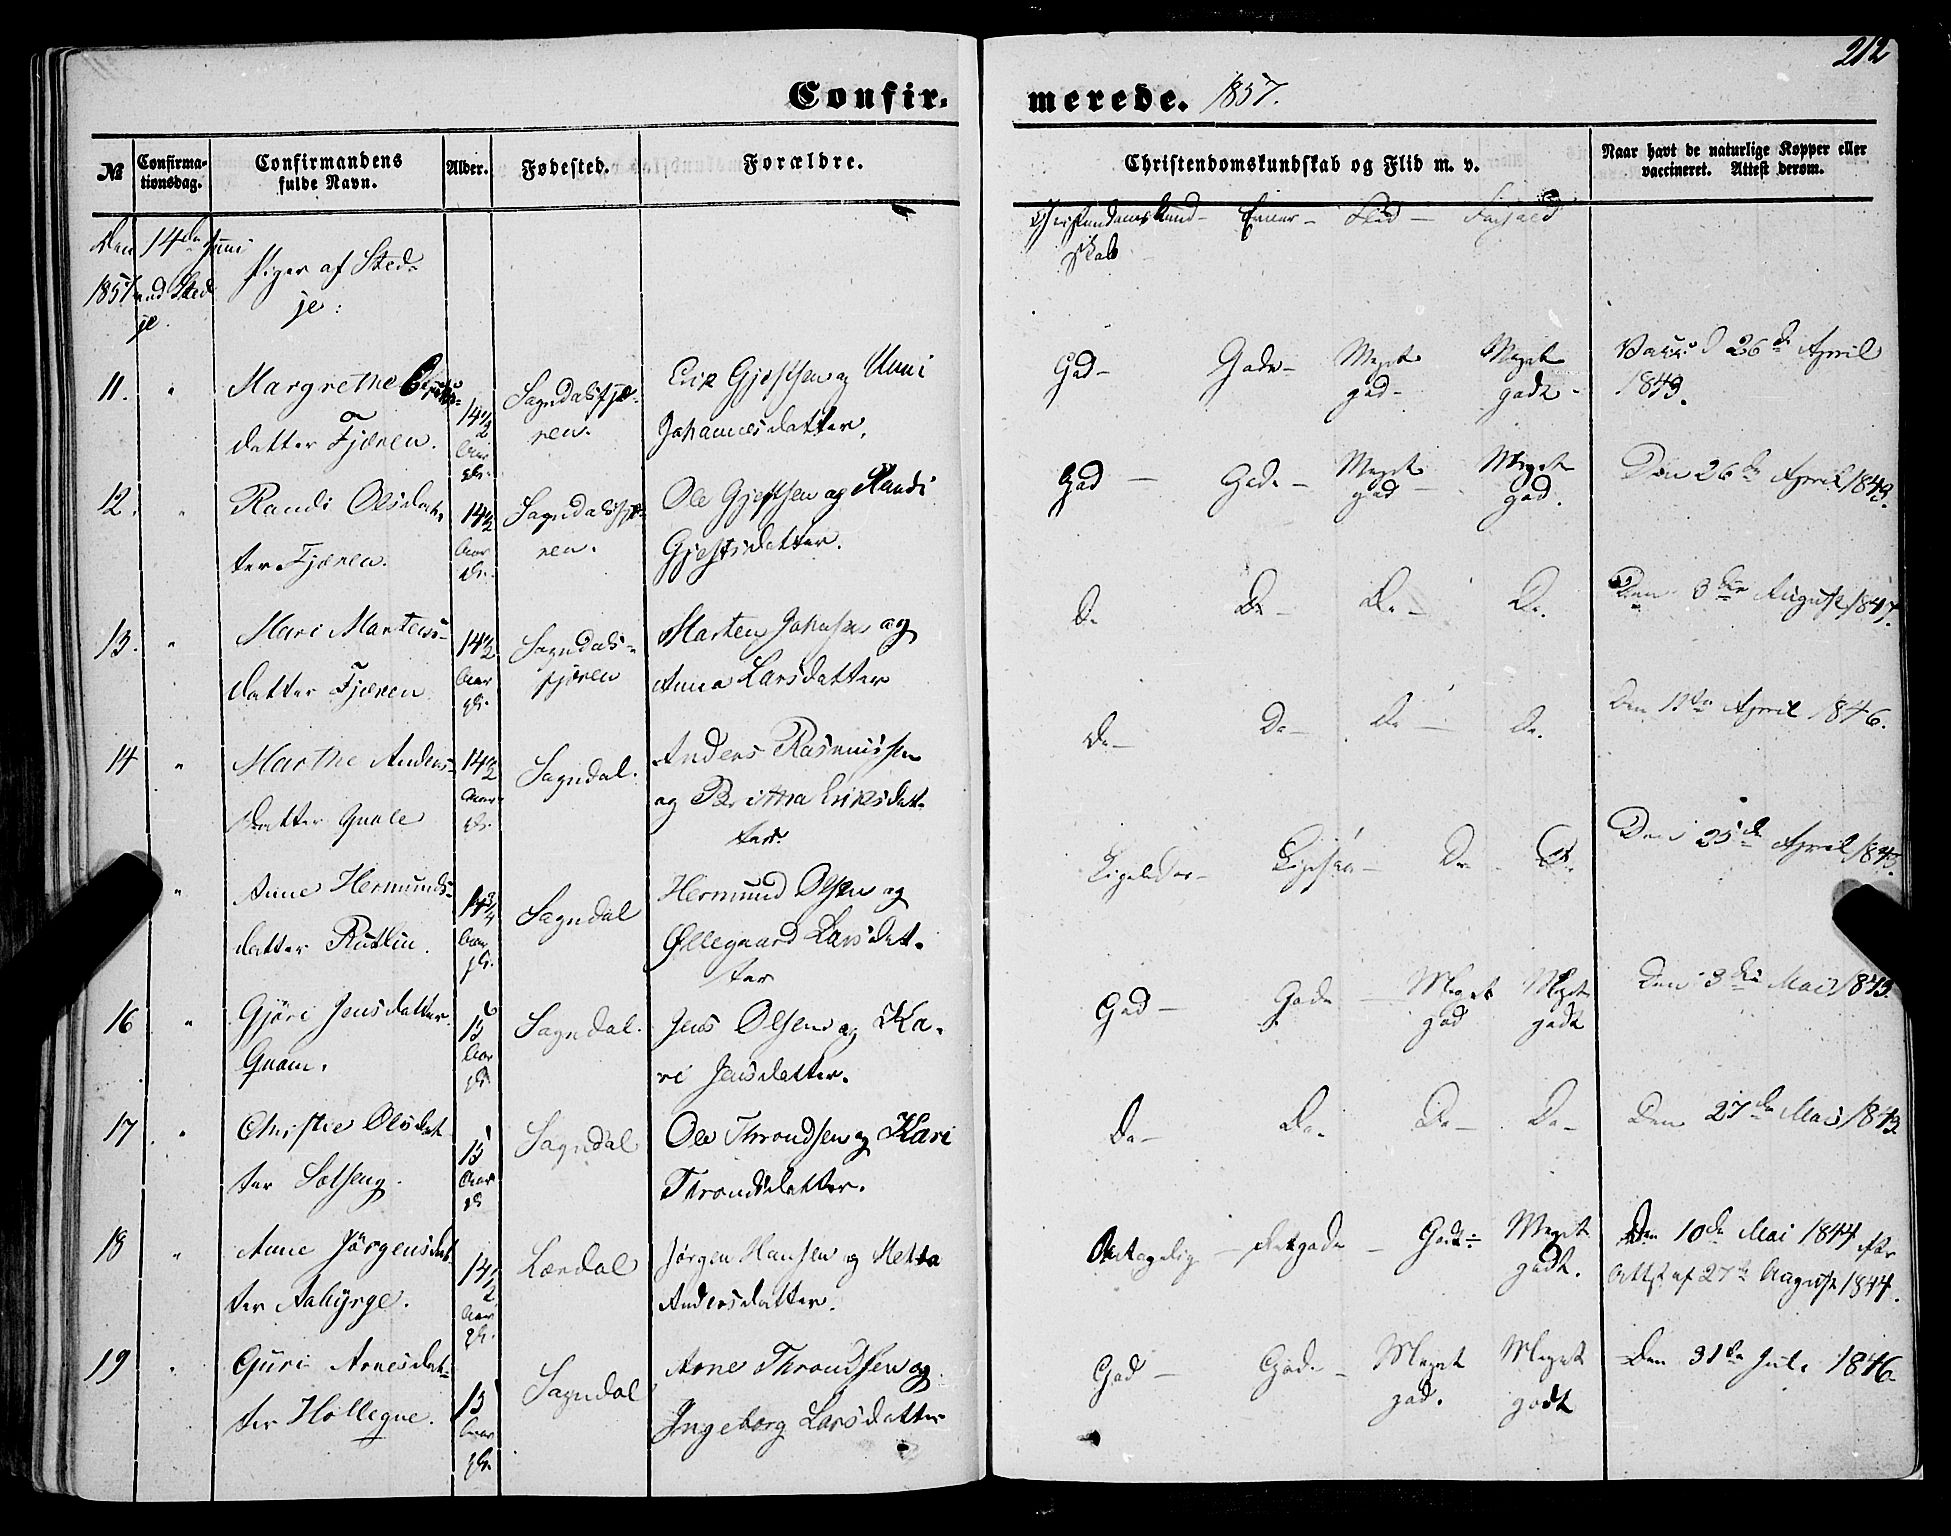 212
Confirmerede. 1857.
№ Confirmationsdag. Confirmandens fulde Navn. Alder. Fødested. Forældre. Christendomskundskab og Flid m. v. Naar havt de naturlige Kopper eller vaccineret. Attest derom.
Den 14de Juni
1857 ved Sted
je.
Piger af Sted-
je:
Christendomskund- Evner- Flid- Forhold
skab
11. " Margrethe
datter Fjæren. 14½ Aar gl. Sogndalsfjæ-
ren. Erik Gjestsen og Unni
Johannesdatter. God- Gode- Meget god- Meget godt- Vacc. d 26de April
1843.
12. " Randi Olsdat-
ter Fjæren. 14½ Aar gl. Sogndalsfjæ-
ren. Ole Gjestsen og Randi
Gjestsdatter. God- Gode- Meget god- Meget god. Den 26de April 1843.
13. " Mari Martens-
datter Fjæren 14½ Aar gl. Sogndals-
fjæren Marten Johnsen og
Anna Larsdatter Do Do- Do- Do. Den 3die August 1847.
14 " Marthe Anders-
datter Qvale 14½ Aar gl. Sogndal. Anders Rasmussen
og Brittha Eriksdat-
ter. Do- Do- Do- Do. Den 11te April 1846.
" Anne Hermunds-
datter Rutlin. 14¾ Aar gl. Sogndal Hermund Olsen og
Øllegaard Larsdat-
ter Do- Do. Den 25de April 1843.
16 " Gjöri Jensdatter
Qvam. 15 Aar gl. Sogndal. Jens Olsen og Ka-
ri Jensdatter. God- Gode- Meget god Meget godt Den 3die Mai 1843.
17 " Christie Olsdat
ter Sætseng. 15 Aar gl. Sogndal Ole Throndsen og Kari
Throndsdatter. Do- Do. Do- Do- Den 27de Mai 1843.
18 " Anne Jörgensdat-
ter Aabÿrge. 14½ Aar gl. Lærdal Jörgen Hansen og Metta
Andersdatter. Antagelig- Godt- Meget godt. Den 10de Mai 1844 efter
Attst af 27de August 1844.
19 " Guri Arnesdat-
ter Höllegne. 15 Aar gl. Sogndal Arne Throndsen og
Ingeborg Larsdatter God- Gode- Meget god. Meget godt Den 31te Juli 1846.